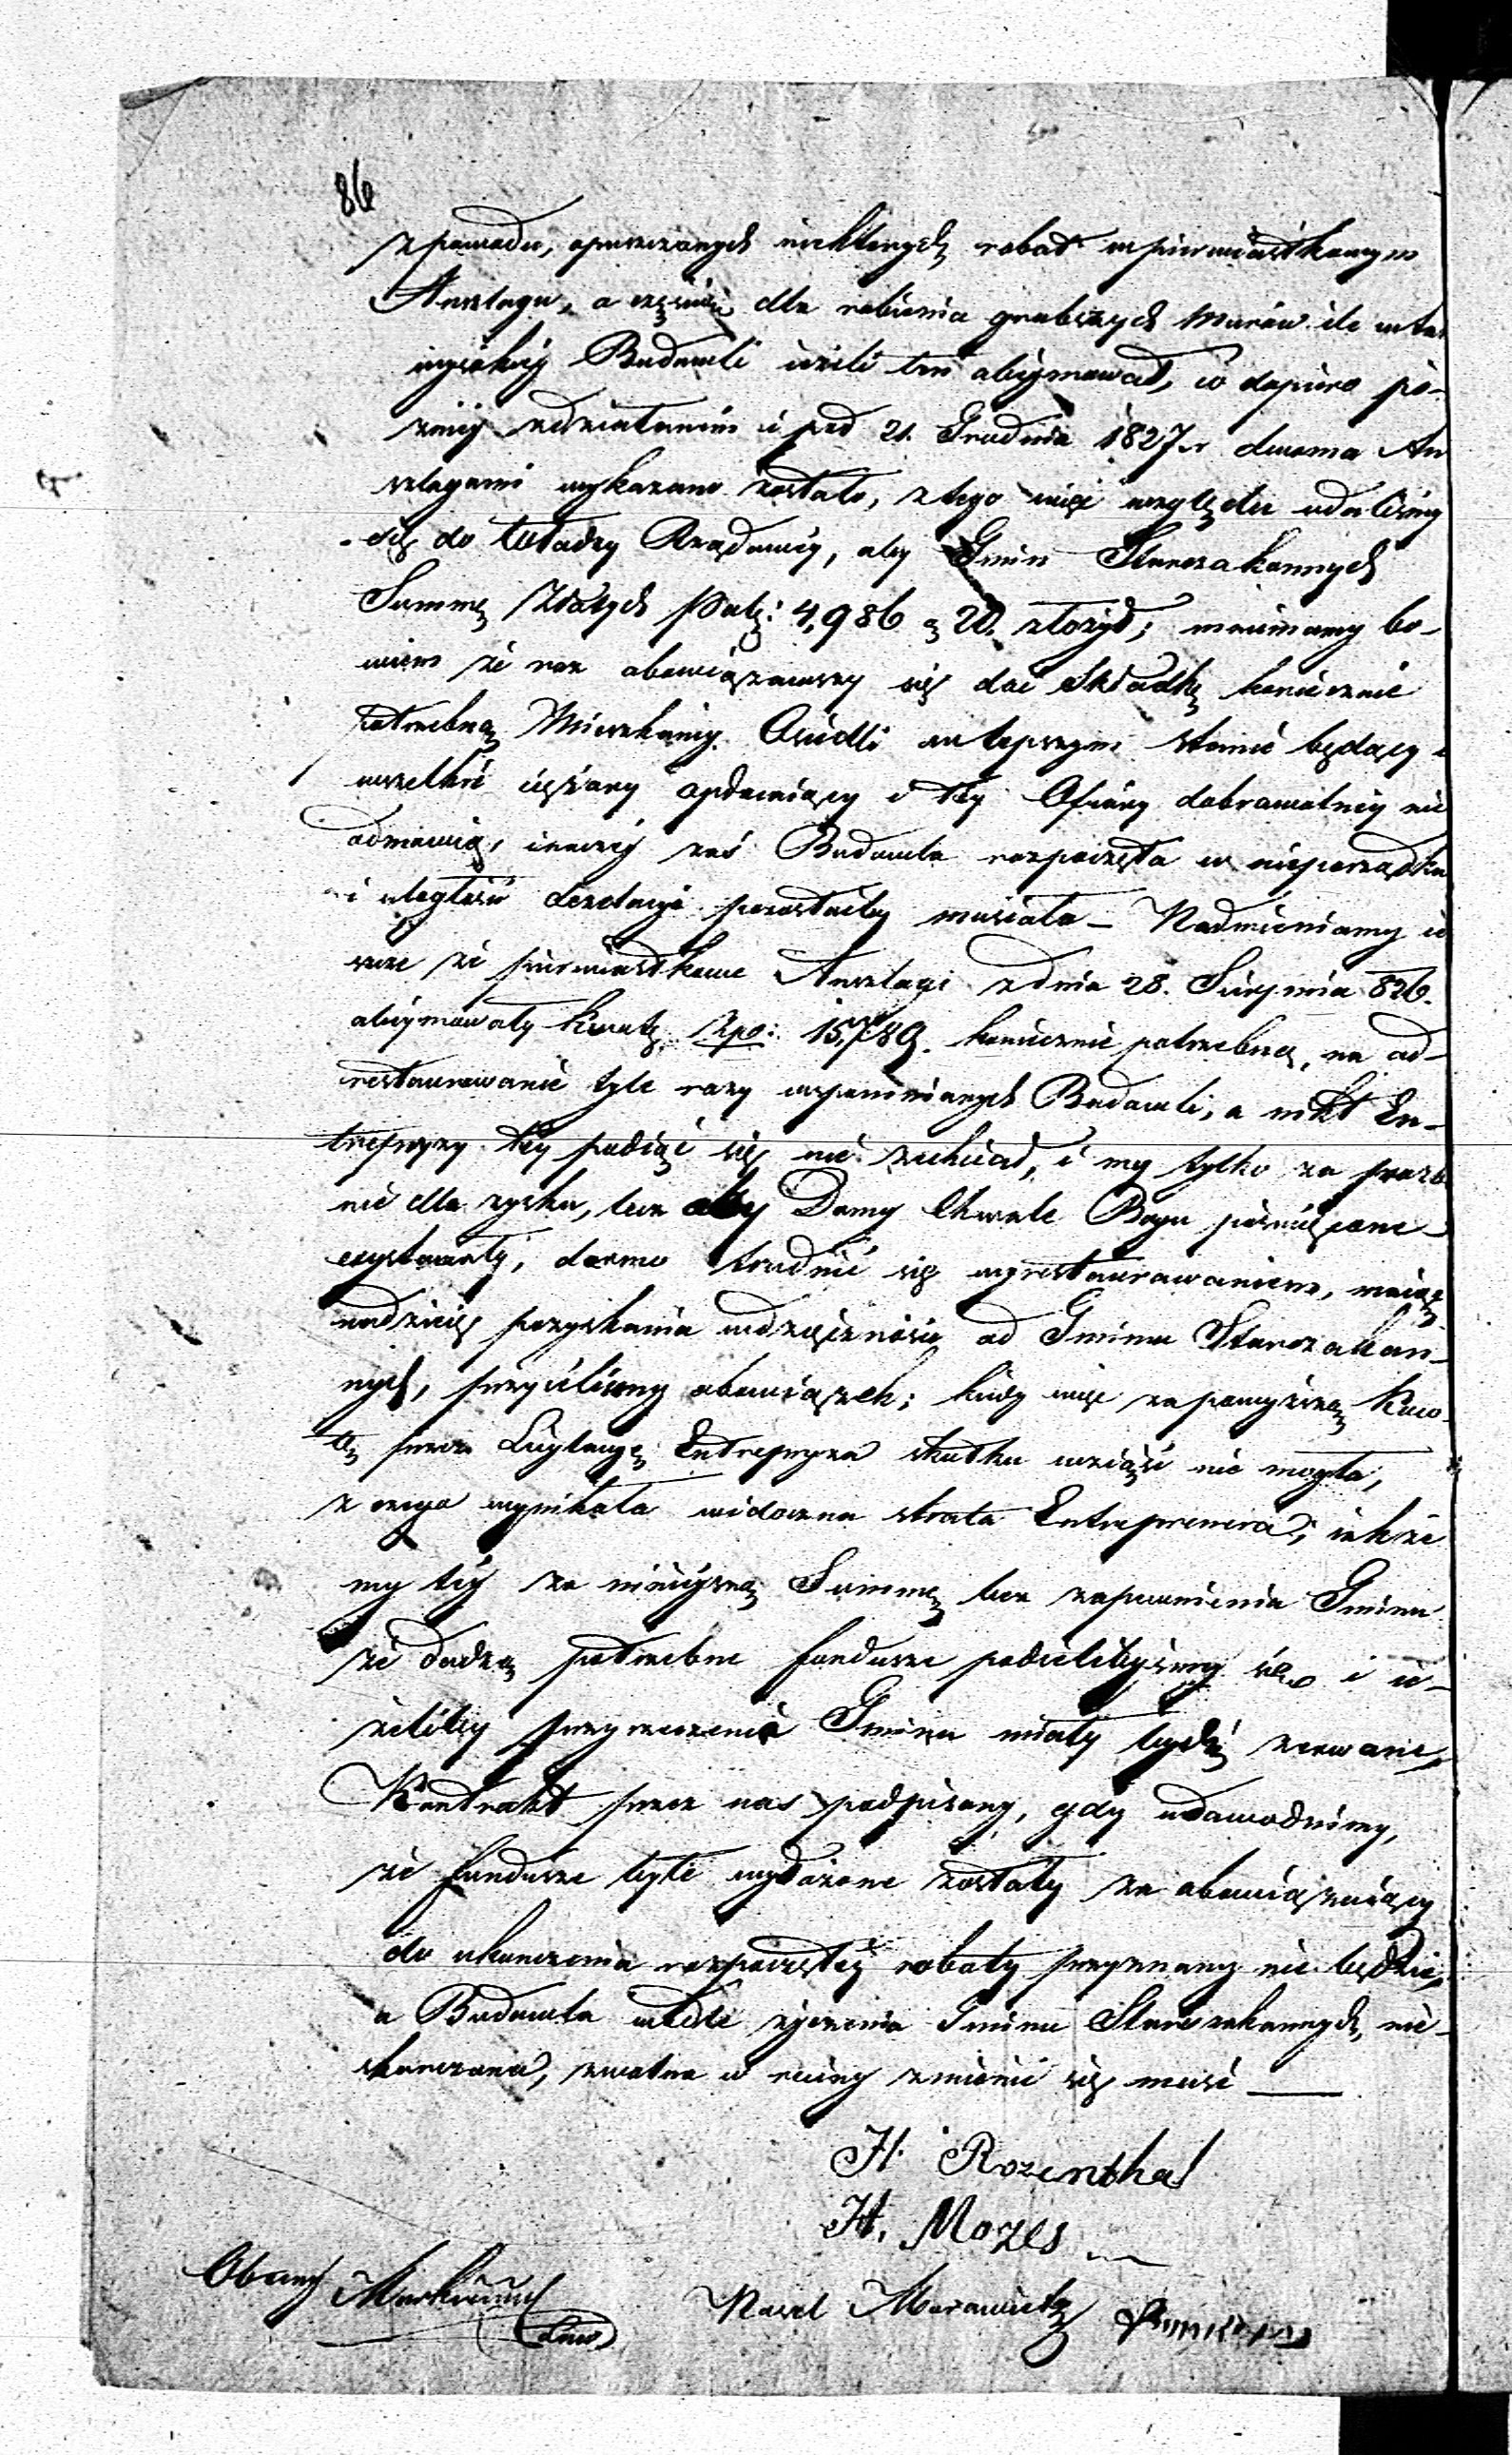 86
z powodu, opuszczonych niektórych robot w pierwiastkowym
Anszlagu, a częścią dla robienia grubszych murów ile w tak
wysokiey Budowli iżeli ten obeymował, co dopiero pó-
źniey zdziałanemi i pod 21. Grudnia 1827 r dwoma An
szlagami wykazano zostało, z tego więc względu udaliśmy
się do Władzy Rządowey, aby Gmin Starozakonnych
Summę Złotych Pols: 4,986 g 20. złożył; mniemamy bo-
wiem że raz obowiązawszy się dać Składkę koniecznie
potrzebną Mieszkańcy Osiedli w lepszym stanie będący i
wszelkie ciężary opłacaiący i tey Ofiary dobrowolney nie
odmówią, inaczey zaś Budowla rozpoczęta w nieporządku
i uległość dezolacyi pozostaćby musiała – Nadmieniamy ie
szcze że pierwiastkowe Anszlagi z dnia 28. Sierpnia 826.
obeymowały kwotę Zpo: 15,789. koniecznie potrzebną, na od-
restaurowanie tyle razy wspomnianych Budowli, a nikt En-
trepryzy tey podiąć się nie zechciał, i my tylko za prozb
nie dla zysku, lecz aby Domy Chwale Bogu poświęcone
exystowały, darmo trudnić się wyrestaurowaniem, maiąc
nadzieię pozyskania wdzięczności od Gminu Starozakon-
nych, przyieliśmy obowiązek; kiedy więc za powyższą kwo-
tę przez Licytacyę Entrepryza skutku wziąść nie mogła,
z czego wynikała widoczna strata Entreprenera; iakże
my tey za mnieyszą Summę bez zapewnienia Gminu
że dadzą potrzebne fundusze podielibyśmy się i ie-
żeliby przyrzeczenia Gminu miały bydź zerwane,
Kontrakt przez nas podpisany, gdy udowodniemy,
że fundusze tyle wyłożone zostały za obowiązuiący
do ukończenia rozpoczętey roboty przyznany nie będzie,
a Budowla wedle życzenia Gminu Starozakonnych, nie-
skończona, zwolna w ruiny zmienić się musi —
H. Rozenthal
H. Mozes
Nosel Morawietz